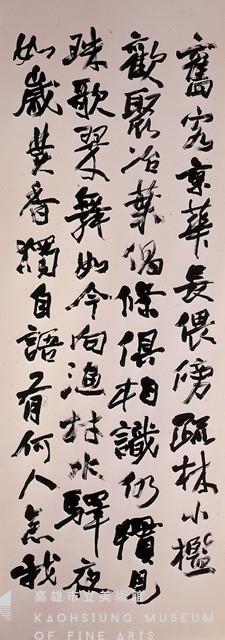 舊客京華長偎傍疏林小檻
歡聚冶葉倡條俱相識仍慣見
珠歌翠舞如今向漁村水驛夜
如歲焚香獨自語有何人念我
高雄市立美術館
KAOHSIUNG MUSEUM
OF FINE ARTS